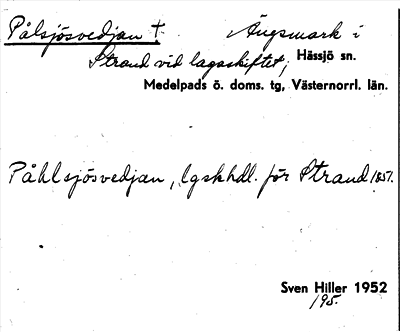 Pålsjösvedjan † Ängsmark i
Strand vid lagaskiftet; Hässjö sn.
Medelpads ö. doms. tg, Västernorrl. län.
Påhlsjösvedjan, lgskhdl. för Strand 1857.
Sven Hiller 1952
195.